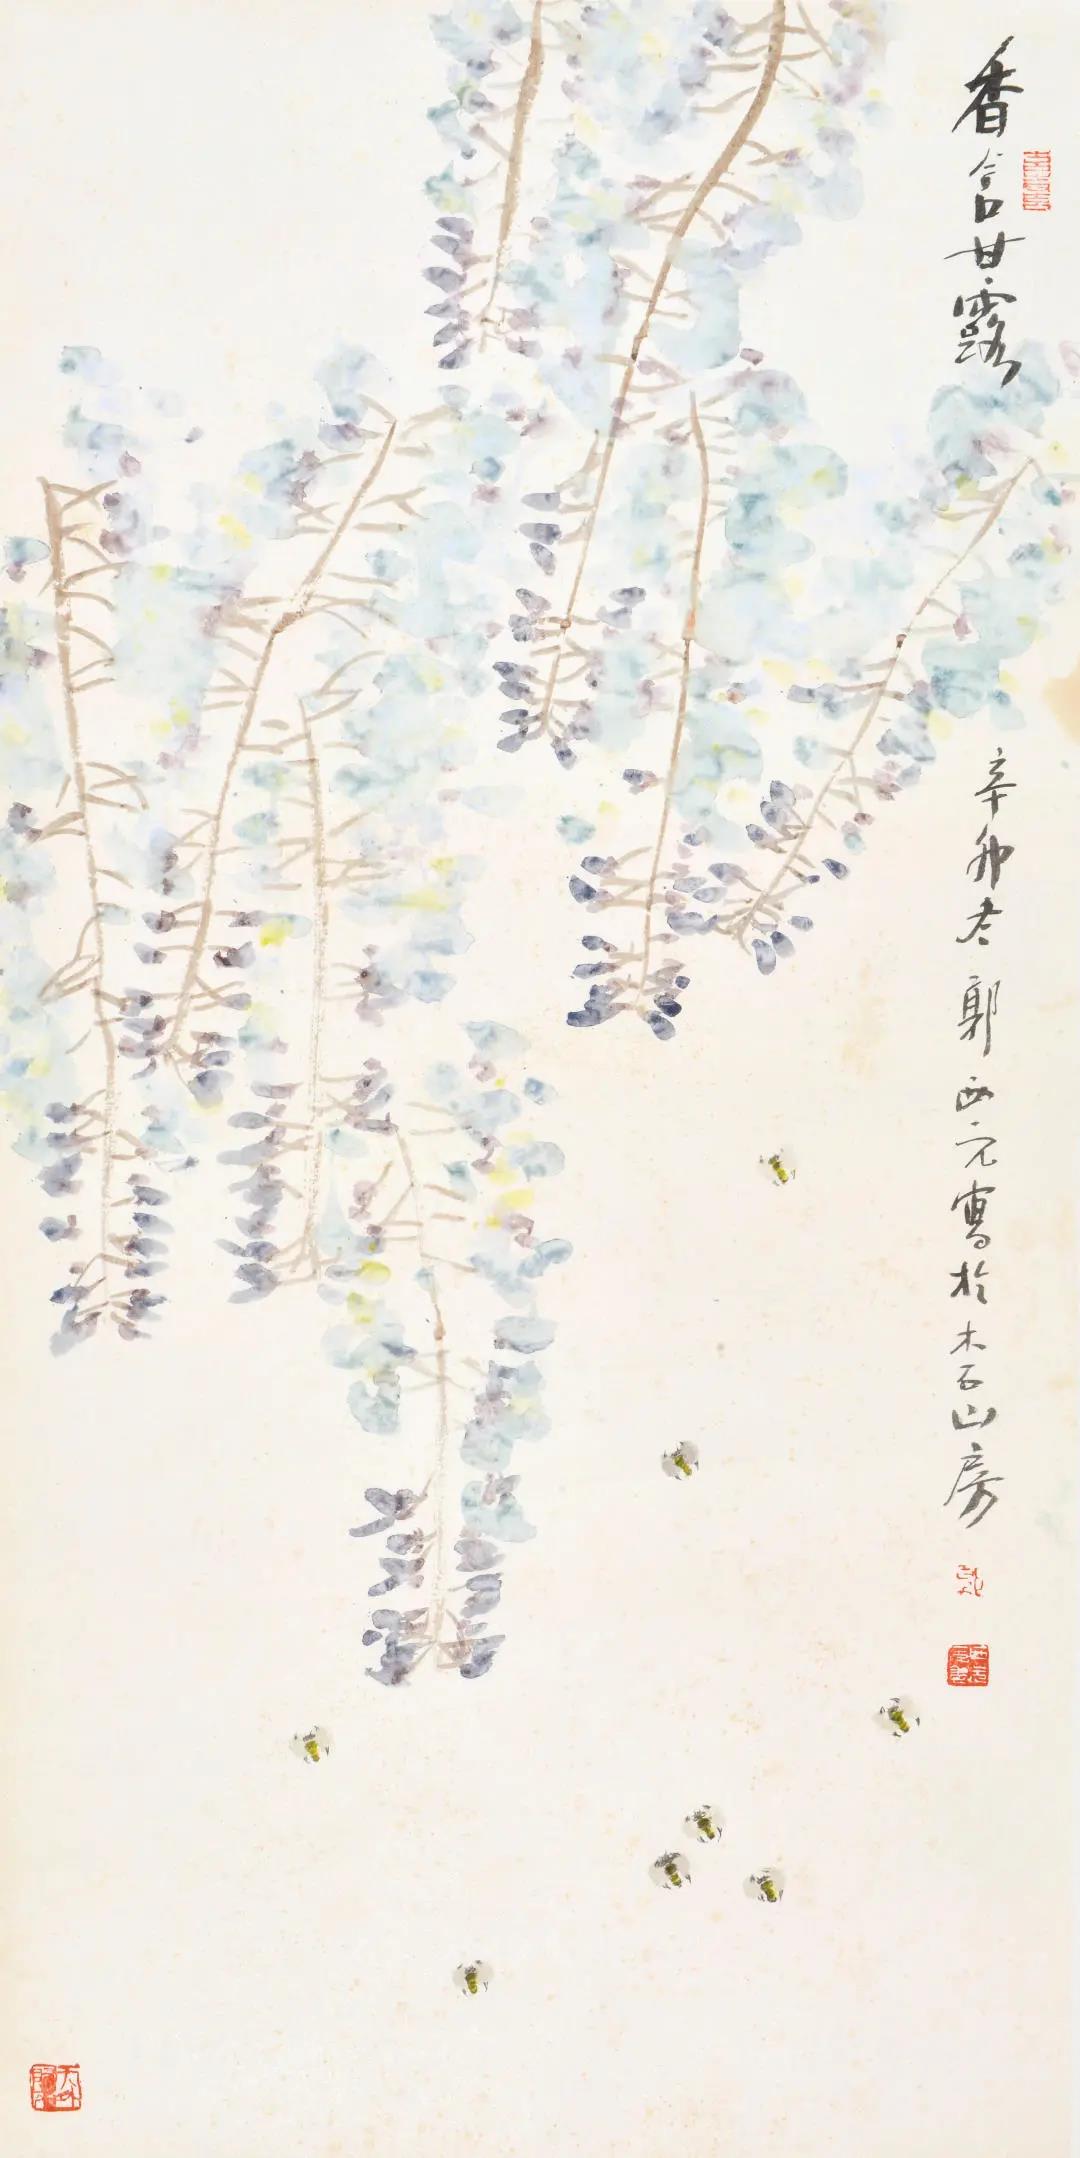 香含甘露
辛卯冬郭西元寫於木石山房